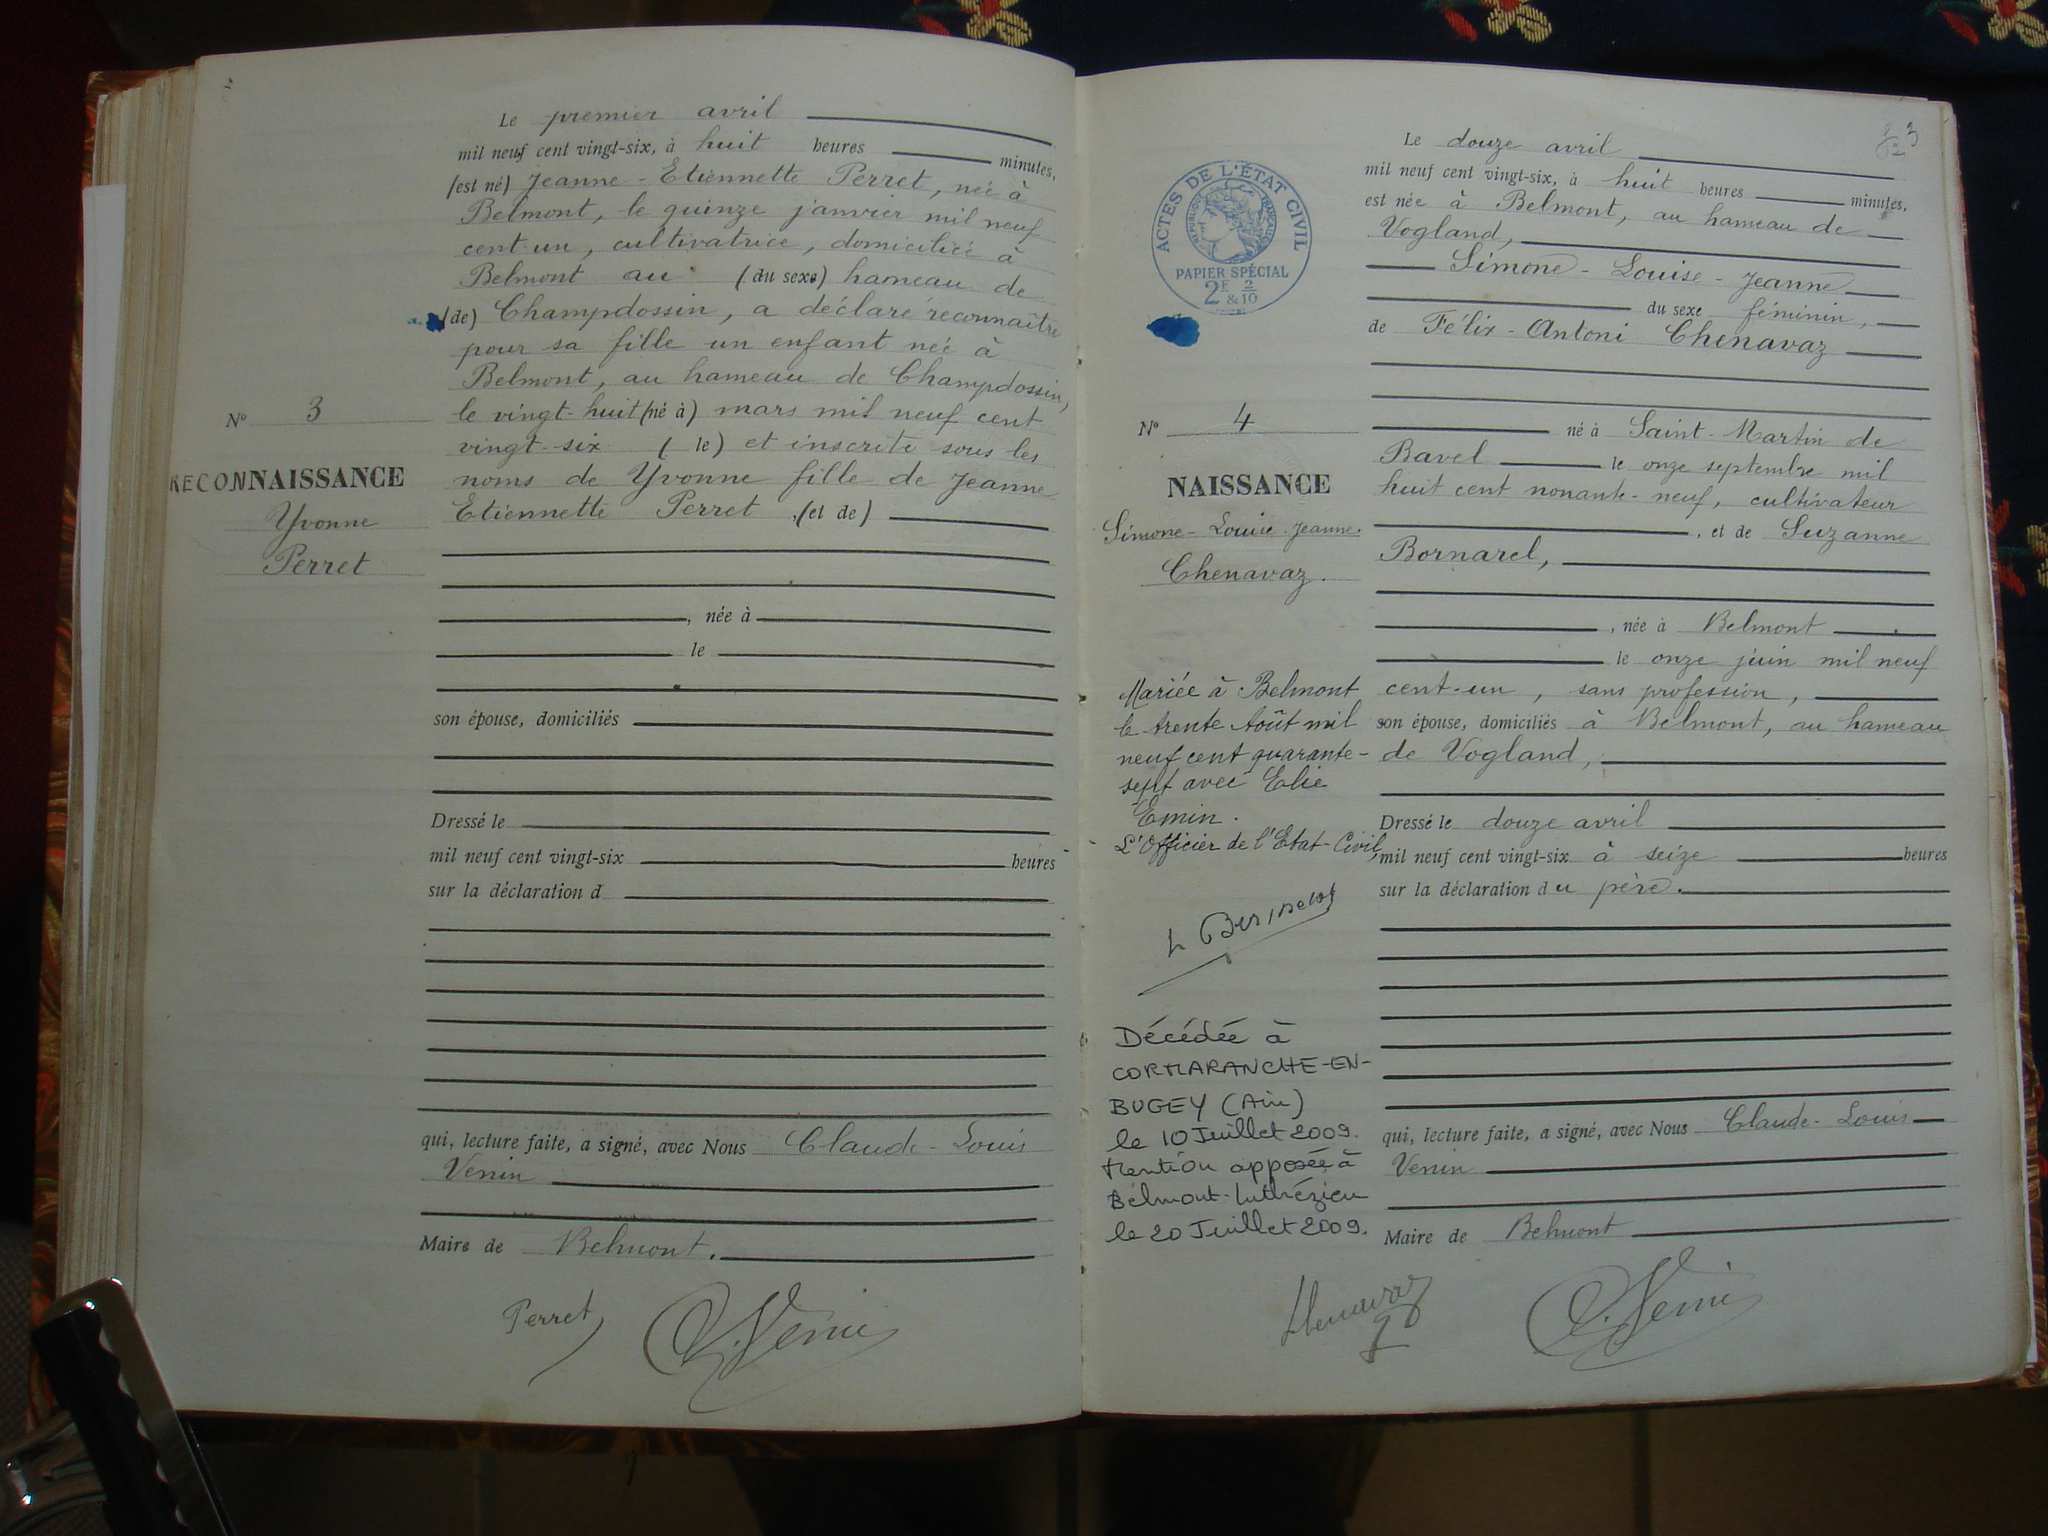 Le premier avril
mil neuf cent vingt-six, à huit heures minutes,
(est né) Jeanne-Etiennette Perret, née à
Belmont, le quinze janvier mil neuf
cent-un, cultivatrice, domiciliée à
Belmont au (du sexe) hameau de
(de) Champdossin, a déclaré reconnaître
pour sa fille un enfant née à
Belmont, au hameau de Champdossin,
le vingt-huit (né à) mars mil neuf cent
vingt-six (le) et inscrite sous les
noms de Yvonne fille de Jeanne
Etiennette Perret (et de)
N° 3
RECONNAISSANCE
Yvonne
Perret
, née à
le
son épouse, domiciliés
Dressé le
mil neuf cent vingt-six heures
sur la déclaration d
qui, lecture faite, a signé, avec Nous Claude-Louis
Venin
Maire de Belmont.
Perret
C. Venin
3
ACTES DE L'ÉTAT CIVIL
RÉPUBLIQUE FRANÇAISE
PAPIER SPÉCIAL
2F & 2/10
Le douze avril
mil neuf cent vingt-six, à huit heures minutes,
est née à Belmont, au hameau de
Vogland,
Simone-Louise-Jeanne
du sexe féminin,
de Félix-Antoni Chenavaz
né à Saint-Martin de
Bavel le onze septembre mil
huit cent nonante-neuf, cultivateur
, et de Suzanne
Bornarel,
, née à Belmont
le onze juin mil neuf
cent-un, sans profession,
son épouse, domiciliés à Belmont, au hameau
de Vogland,
Dressé le douze avril
mil neuf cent vingt-six à seize heures
sur la déclaration du père.
qui, lecture faite, a signé, avec Nous Claude-Louis
Venin
Maire de Belmont
N° 4
NAISSANCE
Simone-Louise-Jeanne.
Chenavaz.
Mariée à Belmont
le trente Août mil
neuf cent quarante-
sept avec Elie
Emin.
L'Officier de l'Etat-Civil,
Décédée à
CORMARANCHE-EN-
BUGEY (Ain)
le 10 Juillet 2009.
Mention apposée à
Belmont-Luthézieu
le 20 Juillet 2009.
Chenavaz
C. Venin